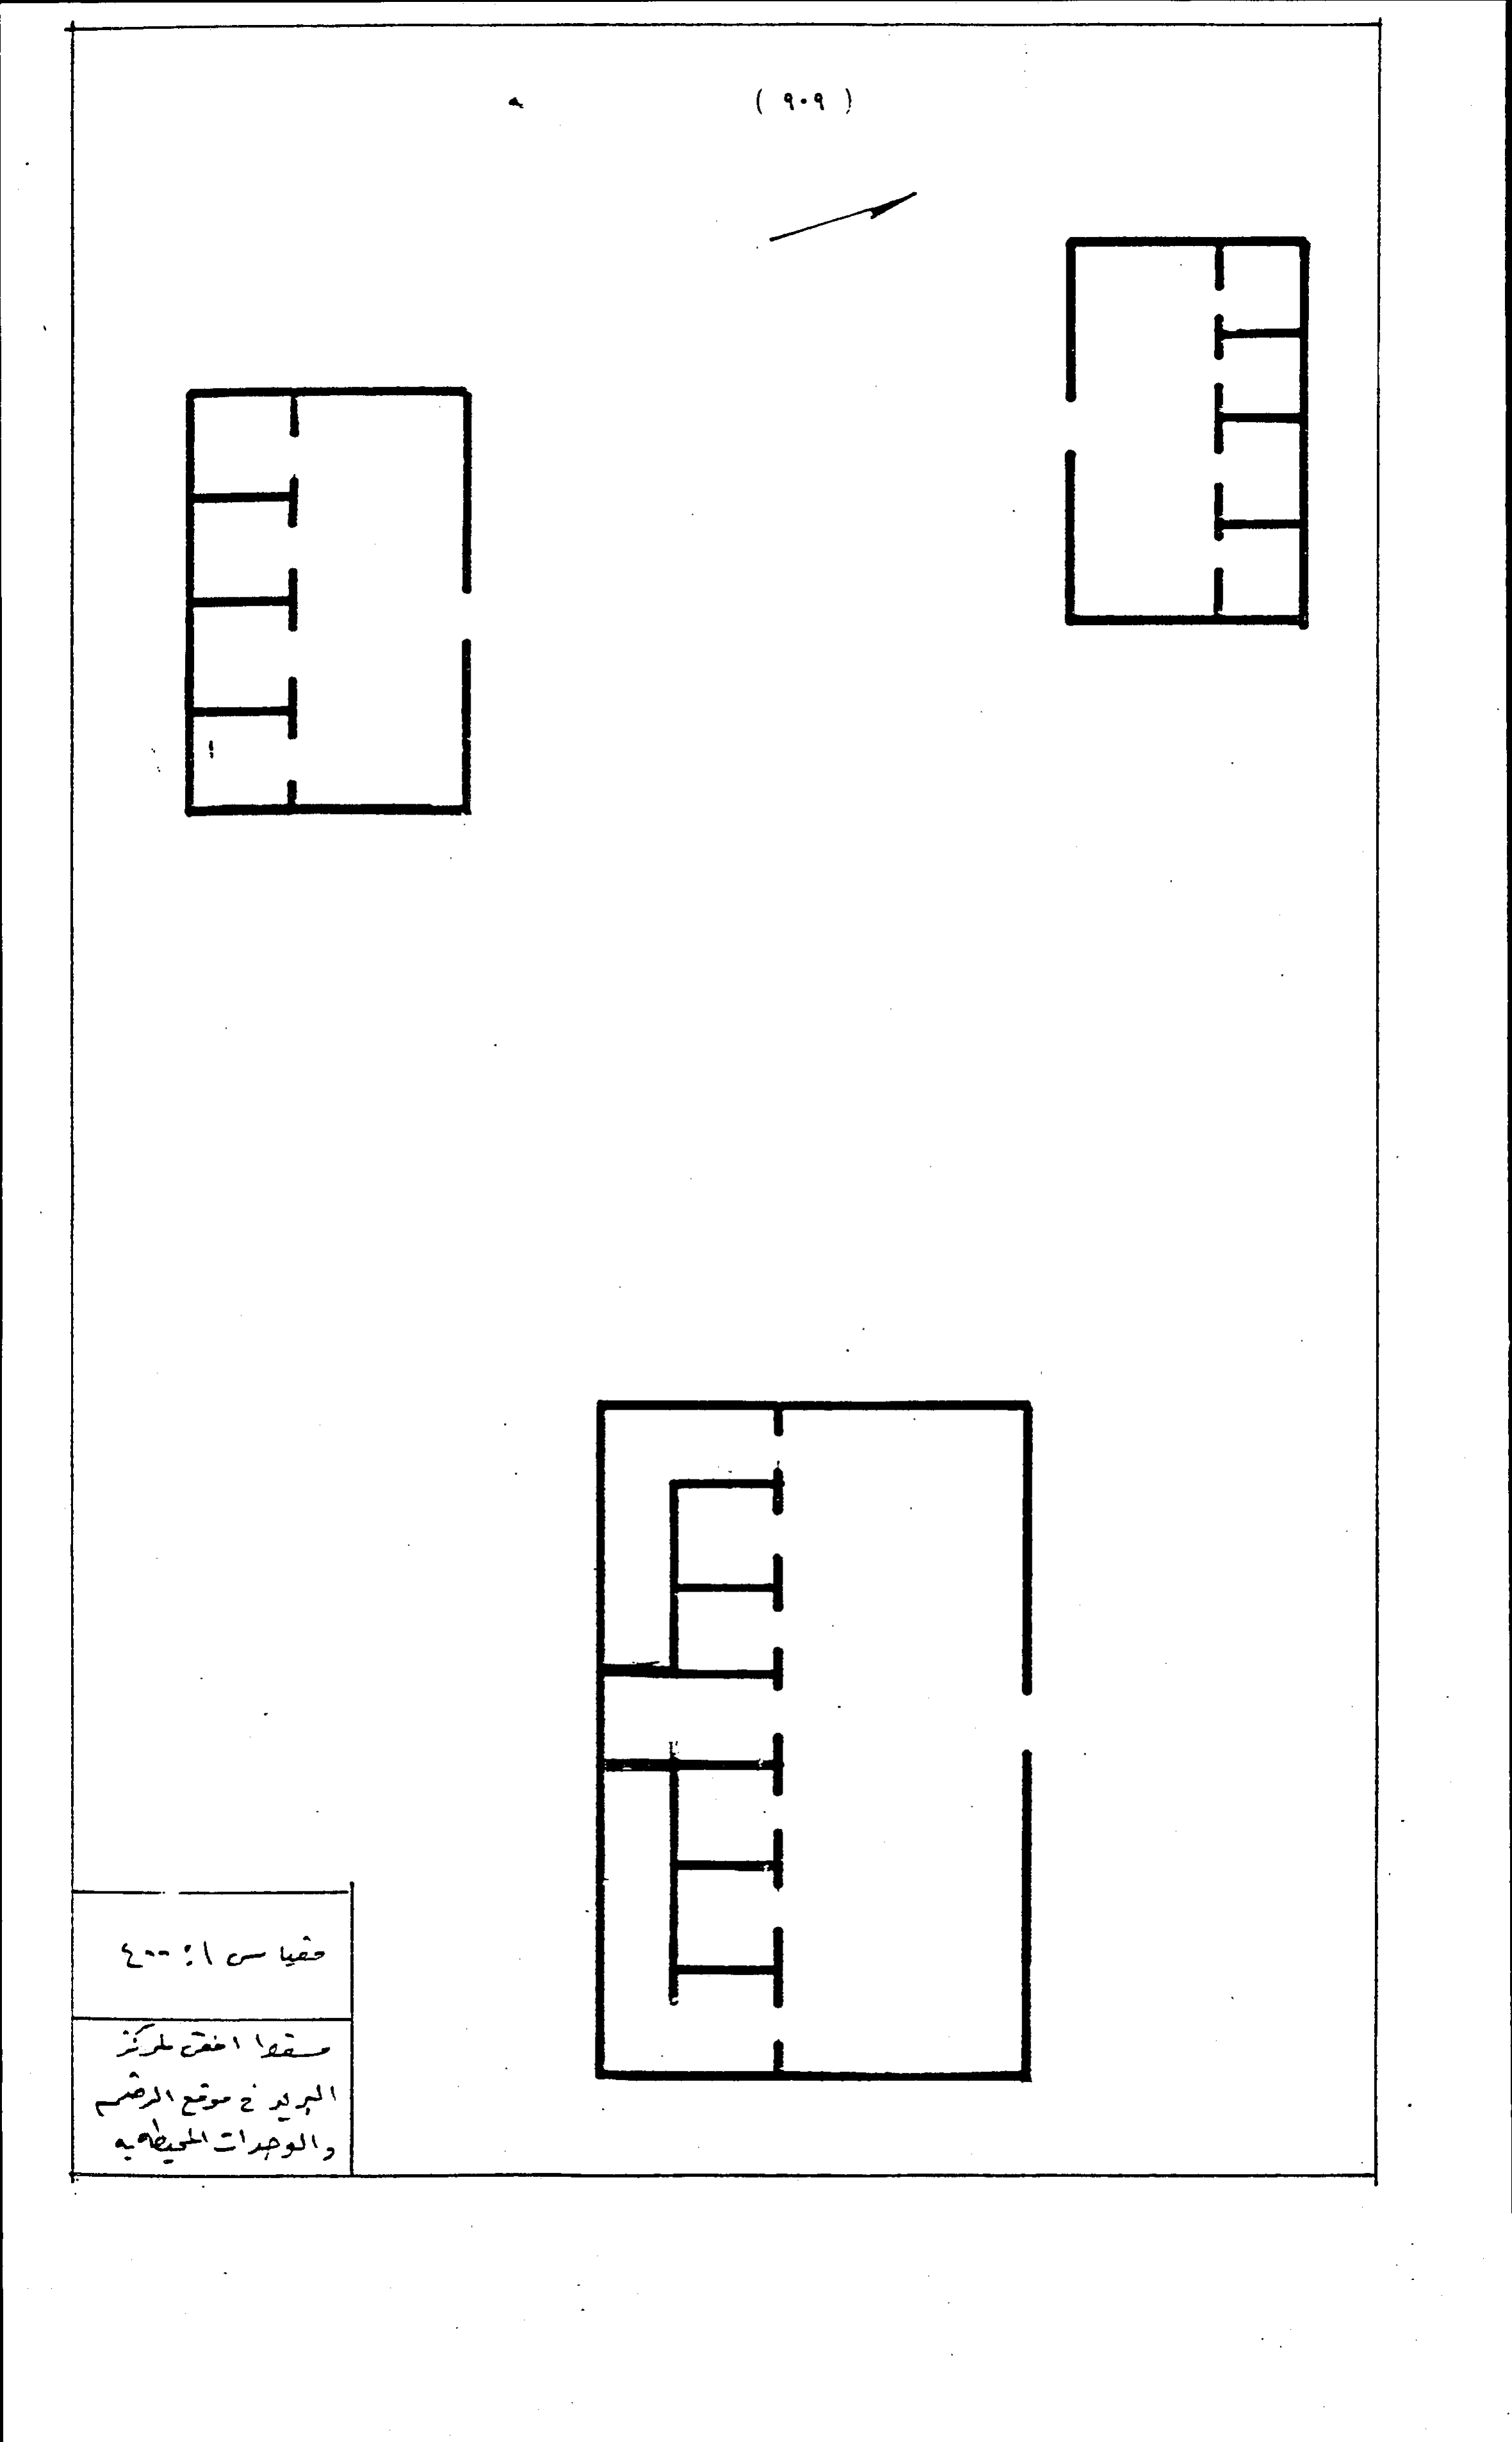 ( ٩٠٩ )
مقياس ١ : ٤٠٠
مسقط افقي لمركز
البريد في موقع الرضم
والوحدات المحيطه به